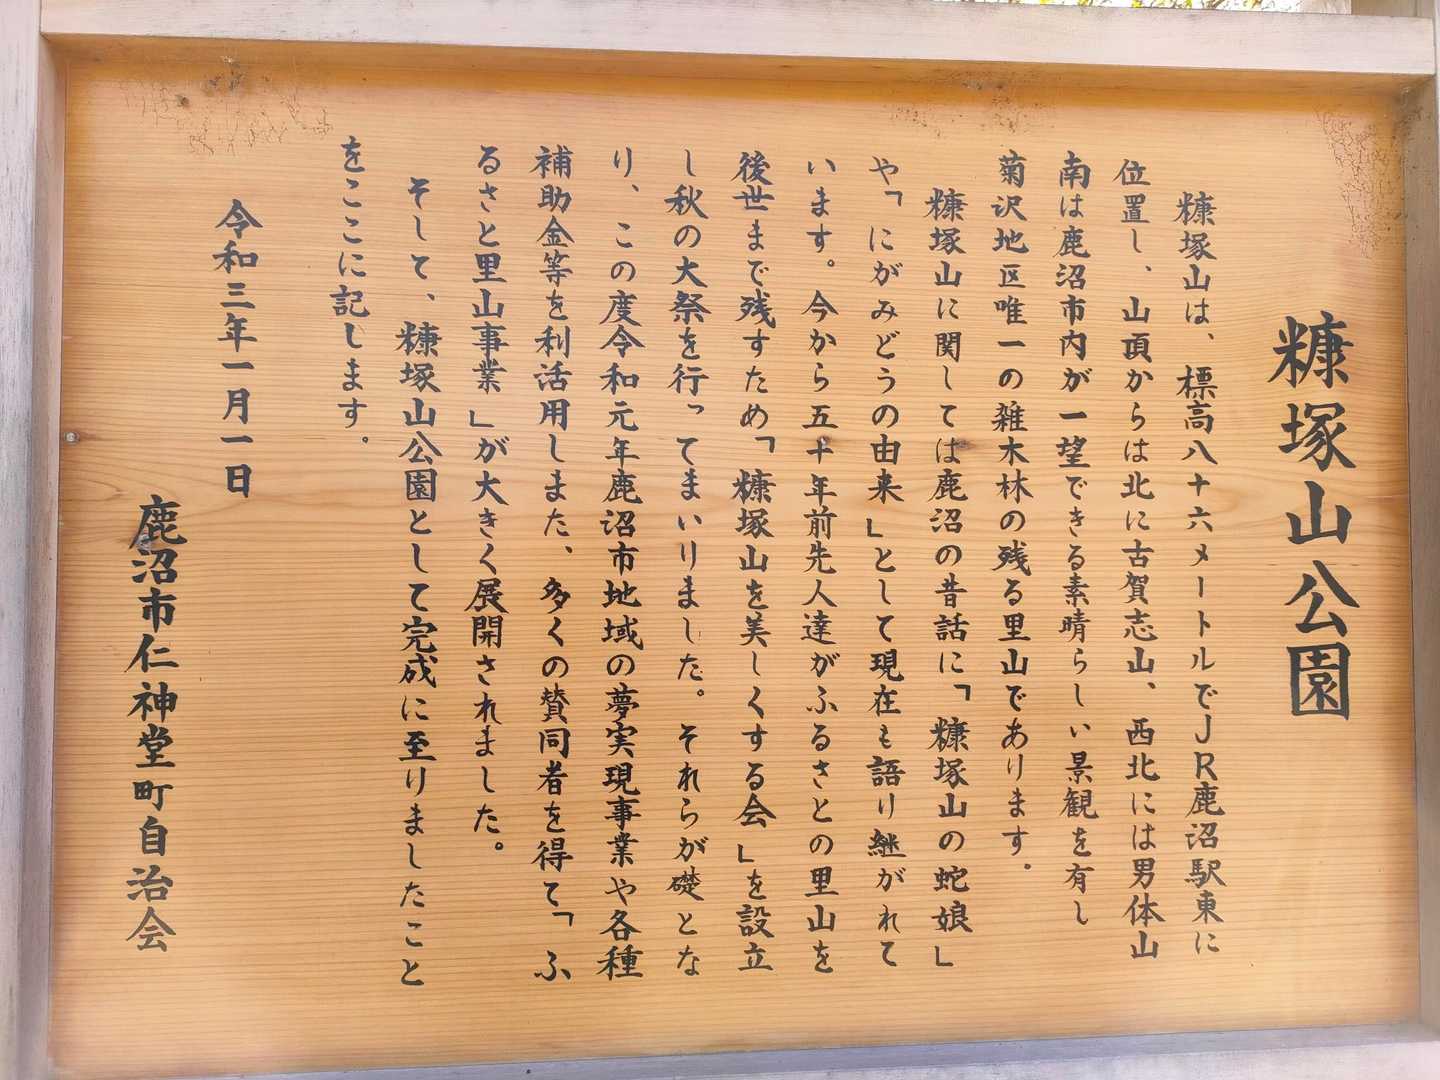 糠塚山公園
糠塚山は、標高八十六メートルでJR鹿沼駅東に
位置し、山頂からは北に古賀志山、西北には男体山
南は鹿沼市内が一望できる素晴らしい景観を有し
菊沢地区唯一の雑木林の残る里山であります。
糠塚山に関しては鹿沼の昔話に「糠塚山の蛇娘」
や「にがみどうの由来」として現在も語り継がれて
います。今から五十年前先人達がふるさとの里山を
後世まで残すため「糠塚山を美しくする会」を設立
し秋の大祭を行ってまいりました。それらが礎とな
り、この度令和元年鹿沼市地域の夢実現事業や各種
補助金等を利活用しまた、多くの賛同者を得て「ふ
るさと里山事業」が大きく展開されました。
そして、糠塚山公園として完成に至りましたこと
をここに記します。
令和三年一月一日
鹿沼市仁神堂町自治会